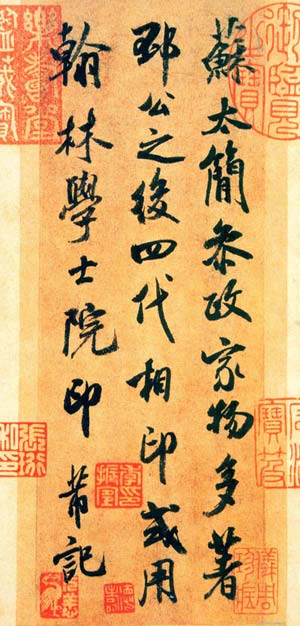 蘇太簡參政家物多著
邳公之後四代相印或用
翰林學士院印 芾記